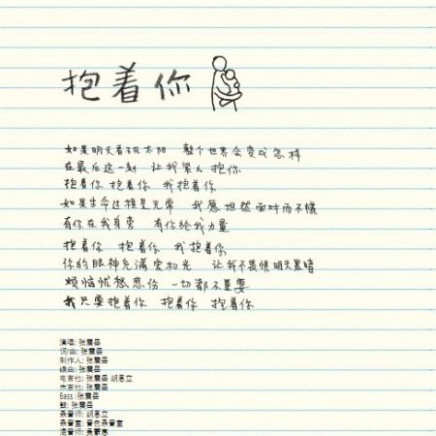 抱着你
如果明天看不见太阳 整个世界会变成怎样
在最后这一刻 让我紧紧抱你
抱着你 抱着你 我抱着你
如果生命这样是无常 我愿坦然面对而不慌
有你在我身旁 有你给我力量
抱着你 抱着你 我抱着你
你的眼神充满爱和光 让我不畏惧明天黑暗
烦恼忧愁悲伤 一切都不重要
我只要抱着你 抱着你 抱着你
演唱: 张震岳
词/曲: 张震岳
制作人: 张震岳
编曲: 张震岳
电吉他: 张震岳 胡恩立
木吉他: 张震岳
Bass: 张震岳
鼓: 张震岳
录音师: 胡恩立
录音室: 音色录音室